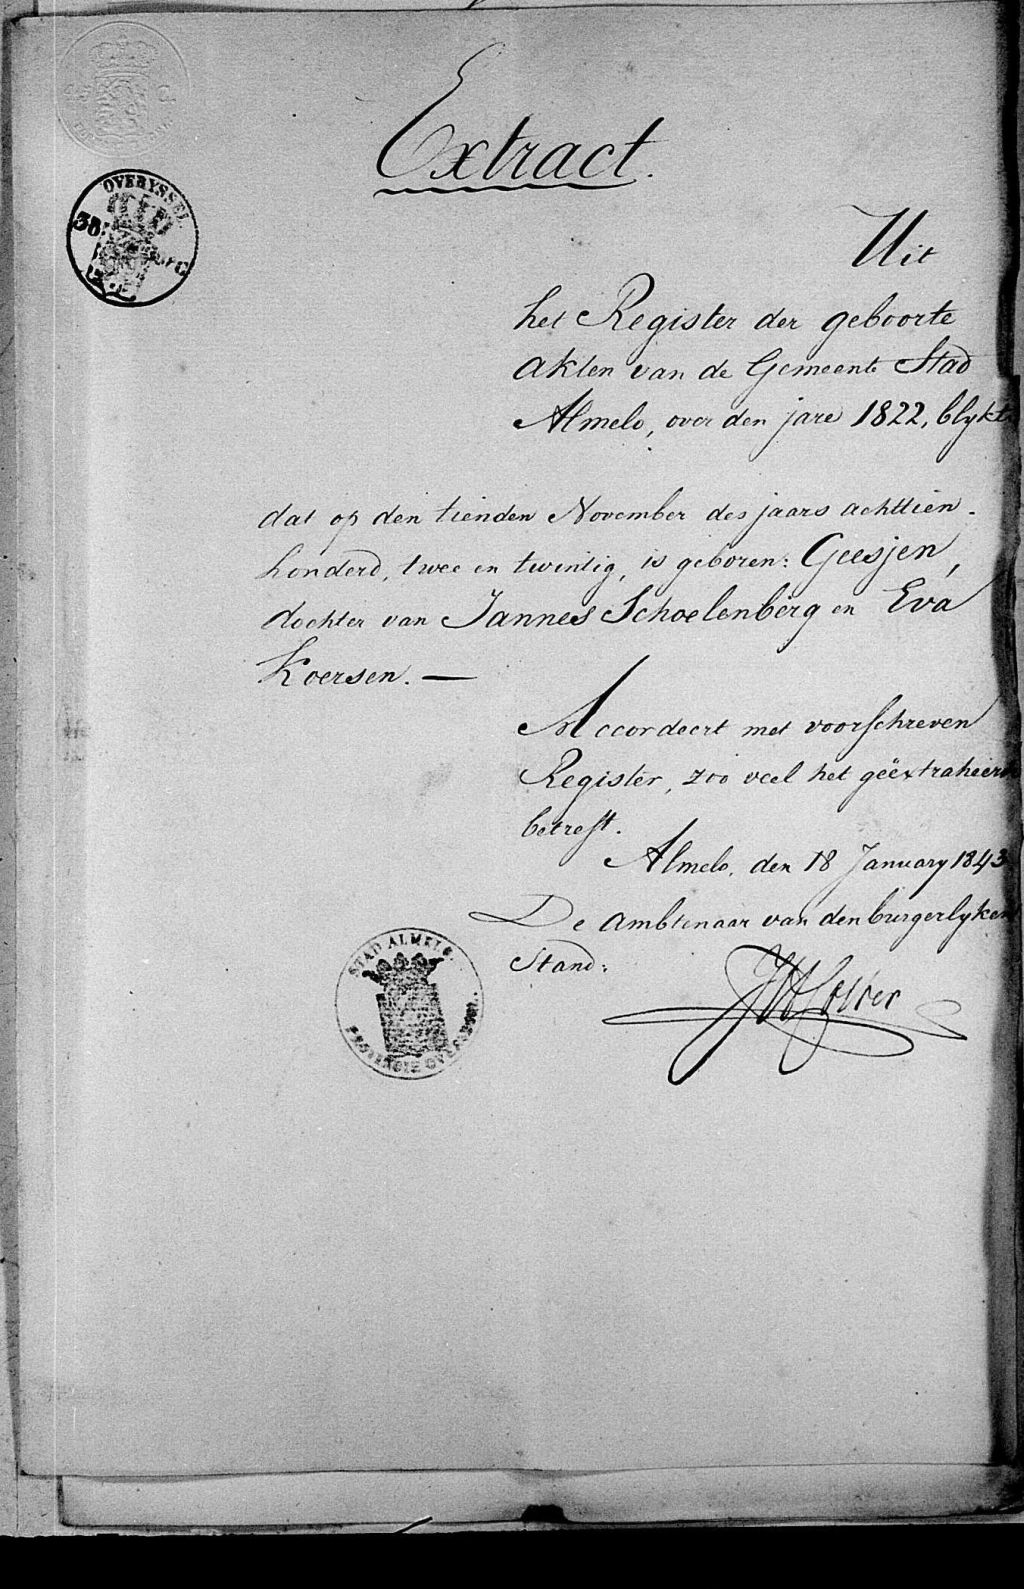 Extract.
OVERYSSEL
Uit
het Register der geboorte
akten van de Gemeente Stad
Almelo, over den jare 1822, blykt
dat op den tienden November des jaars achttien-
honderd, twee en twintig, is geboren: Geesjen,
dochter van Jannes Schoelenberg en Eva
Koersen. —
Accordeert met voorschreven
Register, zoo veel het geëxtraheerde
betreft.
Almelo, den 18 January 1843
De Ambtenaar van den burgerlyken
Stand:
STAD ALMELO
PROVINCIE OVERYSSEL